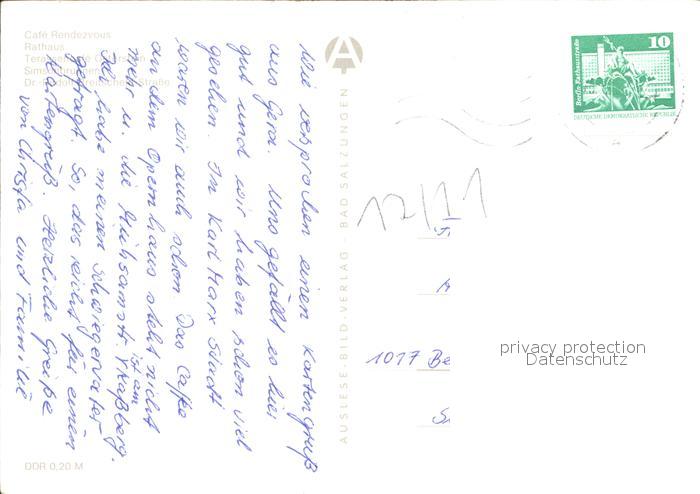 Café Rendezvous
Rathaus
Simsonbrunnen
Dr.-Rudolf-Breitscheid-Straße
Wie versprochen einen Kartengruß
aus Gera. Uns gefällt es hier
gut und wir haben schon viel
gesehen. In Karl Marx Stadt
waren wir auch schon. Das Caffe
an dem Opernhaus steht nicht
mehr u. die Mühsamstr. ist am Kaßberg.
Ich habe meinen Schwiegervater
gefragt. So, das reicht für einen
Kartengruß. Herzliche Grüße
von Christa und Familie
DDR 0,20 M
AUSLESE-BILD-VERLAG - BAD SALZUNGEN
10
Berlin, Rathausstraße
DEUTSCHE DEMOKRATISCHE REPUBLIK
12/11
1017 Be
privacy protection
Datenschutz